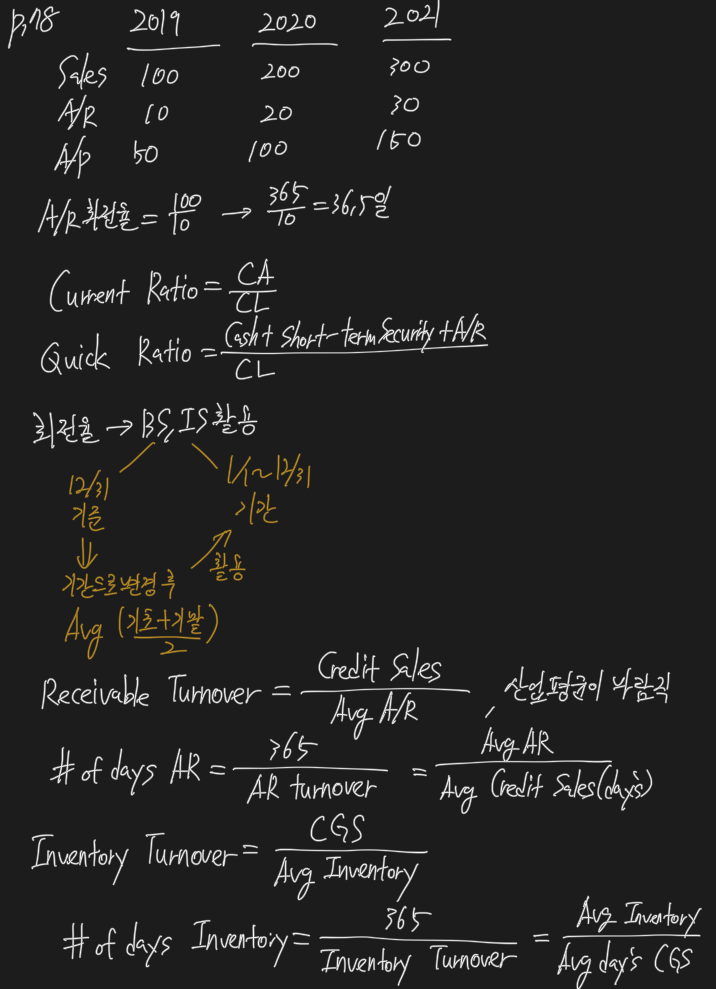 p.78 2019 2020 2021
Sales 100 200 300
A/R 10 20 30
A/P 50 100 150
A/R 회전율 = 100/10 → 365/10 = 36.5일
Current Ratio = CA/CL
Quick Ratio = Cash + Short-term Security + A/R / CL
회전율 → BS, IS 활용
12/31 1/1~12/31
기준 기간
⇓ ↗ 활용
기간으로 변경 후
Avg (기초+기말/2)
Receivable Turnover = Credit Sales/Avg A/R 산업평균이 바람직
# of days AR = 365/AR turnover = Avg AR/Avg Credit Sales(day's)
Inventory Turnover = CGS/Avg Inventory
# of days Inventory = 365/Inventory Turnover = Avg Inventory/Avg day's CGS